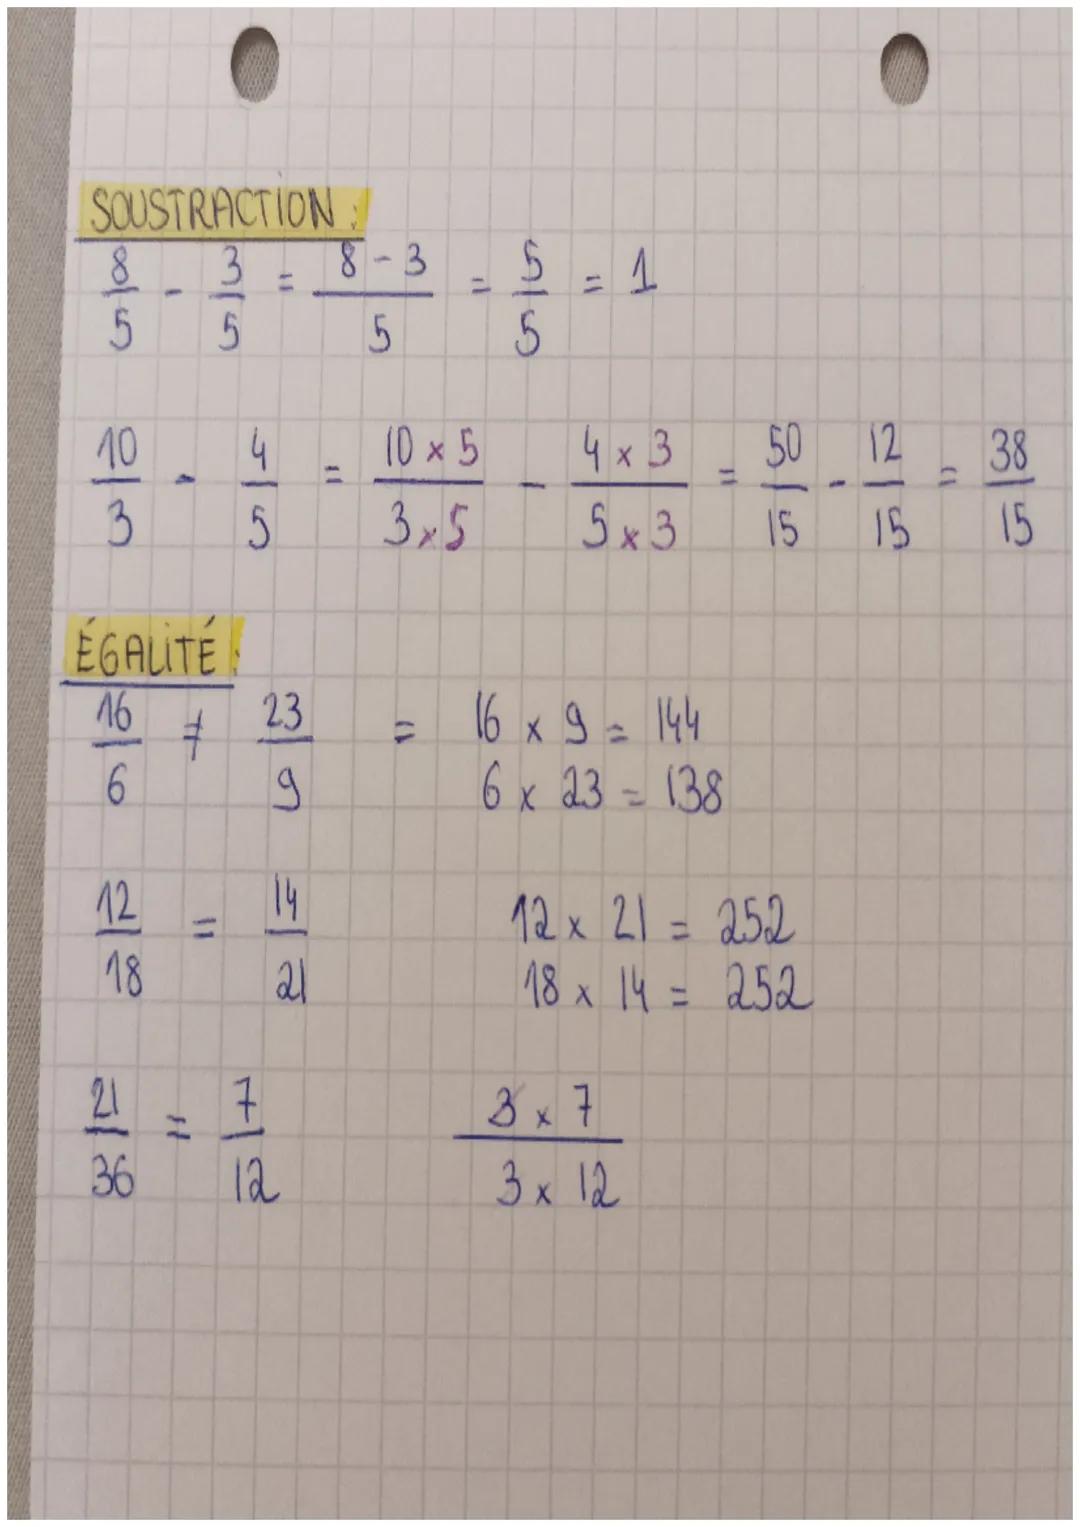 SOUSTRACTION :
8/5 - 3/5 = (8 - 3)/5 = 5/5 = 1
10/3 - 4/5 = (10 x 5)/(3 x 5) - (4 x 3)/(5 x 3) = 50/15 - 12/15 = 38/15
ÉGALITÉ :
16/6 ≠ 23/9 = 16 x 9 = 144
6 x 23 = 138
12/18 = 14/21 12 x 21 = 252
18 x 14 = 252
21/36 = 7/12 (3 x 7)/(3 x 12)